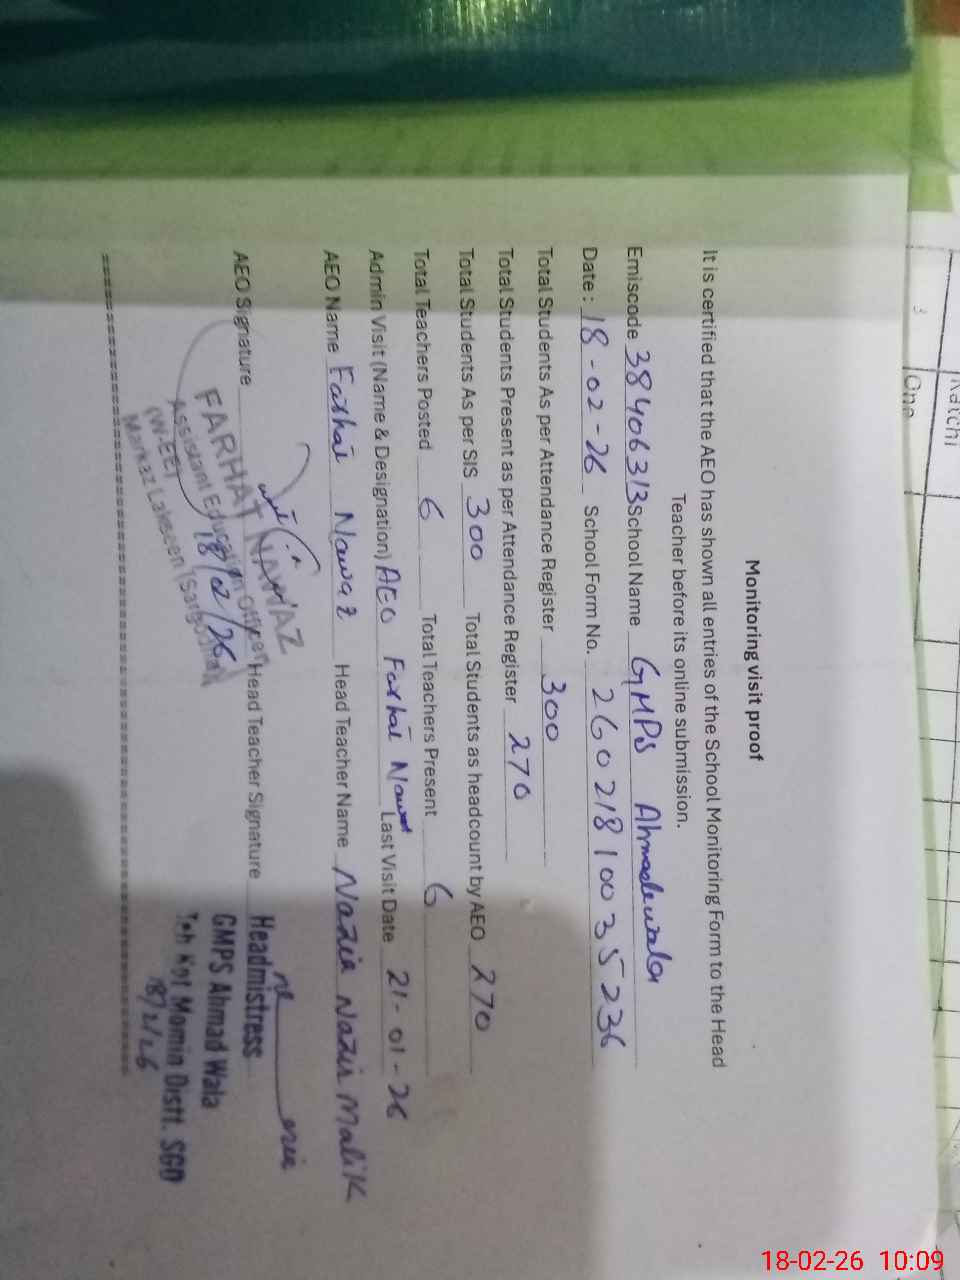 Monitoring visit proof
It is certified that the AEO has shown all entries of the School Monitoring Form to the Head
Teacher before its online submission.
Emiscode 38406313 School Name GMPS Ahmadewala
Date: 18-02-26 School Form No. 26021810035236
Total Students As per Attendance Register 300
Total Students Present as per Attendance Register 270
Total Students As per SIS 300 Total Students as headcount by AEO 270
Total Teachers Posted 6 Total Teachers Present 6
Admin Visit (Name & Designation) AEO Farhat Nawaz Last Visit Date 21-01-26
AEO Name Farhat Nawaz Head Teacher Name Nazia Nazir Malik
AEO Signature Head Teacher Signature
FARHAT NAWAZ
Assistant Education Officer
(W-EE)
Markaz Lakseen (Sargodha)
18/02/26
Headmistress
GMPS Ahmad Wala
Teh Kot Momin Distt. SGD
18/2/26
3 One
Katchi
18-02-26 10:09